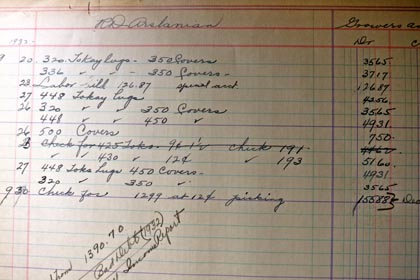 Arslanian Growers
1932 Dr
9 20 320 Tokay lugs - 350 Covers 3565
336 " - 350 Covers - 3717
23 Labor bill 126.87 12687
27 448 Tokay lugs
26 320 " " 350 Covers 3565
448 " " 450 " 4931
26 500 Covers 750
Check for 425 Check 191
" 430 " 12¢ " 193 5160
27 448 Toka lugs 450 Covers - 4931
320 " 350 " 3565
9 30 Check for 1299 at 12¢ picking 15588
From 1390.70
Bad Debt (1932)
Income Report